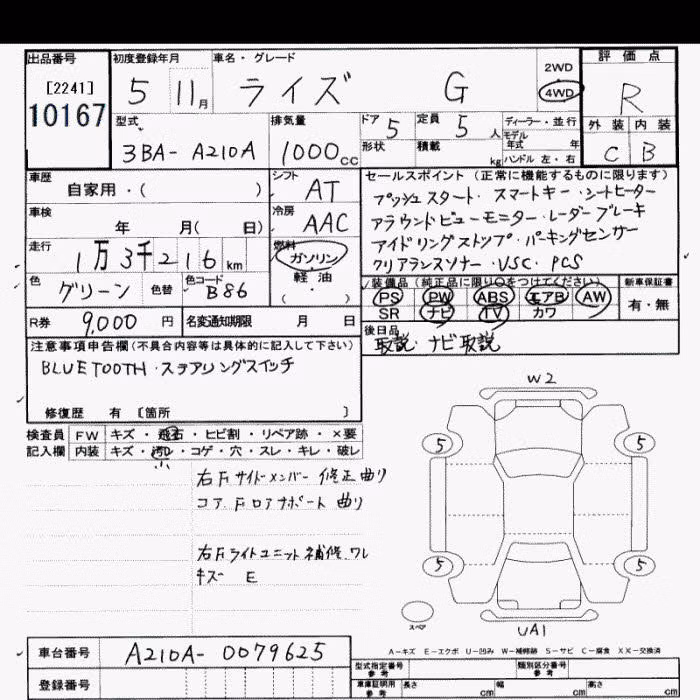 出品番号
[2241]
10167
初度登録年月
5 11月
車名・グレード
ライズ G
2WD
4WD
評価点
R
外装 内装
C B
型式
3BA- A210A
排気量
1000cc
ドア 5
定員 5人
形状
積載 kg
ディーラー・並行
モデル年式 年
ハンドル 左・右
車歴
自家用・( )
シフト
AT
車検
年 月( 日)
冷房
AAC
走行
1万3千216km
燃料
ガソリン
軽油
( )
色
グリーン
色替
色コード
B86
R券 9,000円
名変通知期限 月 日
セールスポイント(正常に機能するものに限ります)
プッシュスタート・スマートキー・シートヒーター
アラウンドビューモニター・レーダーブレーキ
アイドリングストップ・パーキングセンサー
クリアランスソナー・VSC・PCS
装備品(純正品に限り○をつけてください)
PS PW ABS エアB AW
SR ナビ TV カワ
新車保証書
有・無
後日品
取説・ナビ取説
注意事項申告欄(不具合内容等は具体的に記入して下さい)
BLUETOOTH・ステアリングスイッチ
修復歴 有 [箇所 ]
検査員 FW キズ・飛石・ヒビ割・リペア跡・×要
記入欄 内装 キズ・汚レ・コゲ・穴・スレ・キレ・破レ
小
右Fサイドメンバー 修正 曲り
コア、Fロアサポート 曲り
右Fライトユニット補修、ワレ
キズ E
W2
5 5
5 5
スペア
UA1
A-キズ E-エクボ U-凹み W-補修跡 S-サビ C-腐食 XX-交換済
車台番号 A210A- 0079625
登録番号
型式指定番号 参考
類別区分番号 参考
車庫証明用 参考
長さ cm 幅 cm 高さ cm